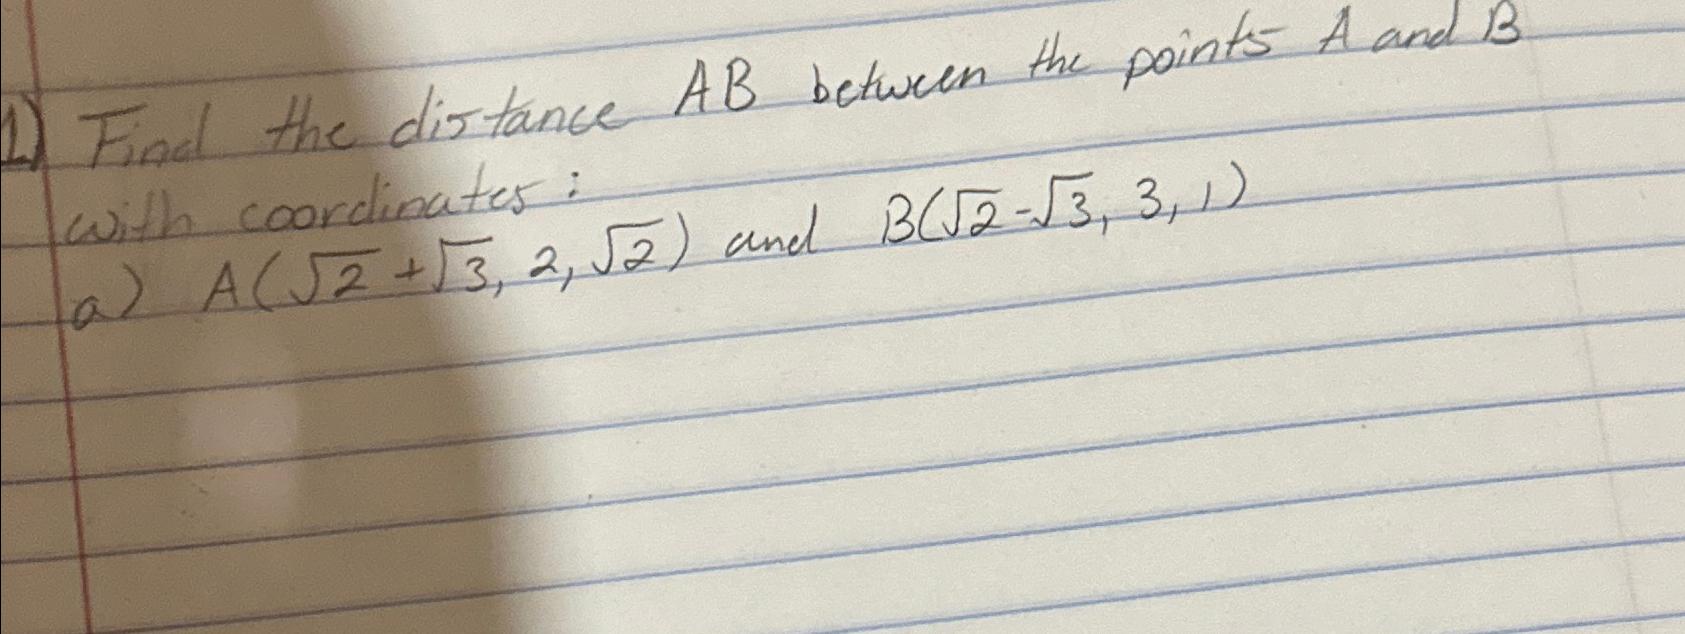 1) Find the distance AB between the points A and B
with coordinates:
a) A(√2+√3, 2, √2) and B(√2-√3, 3, 1)